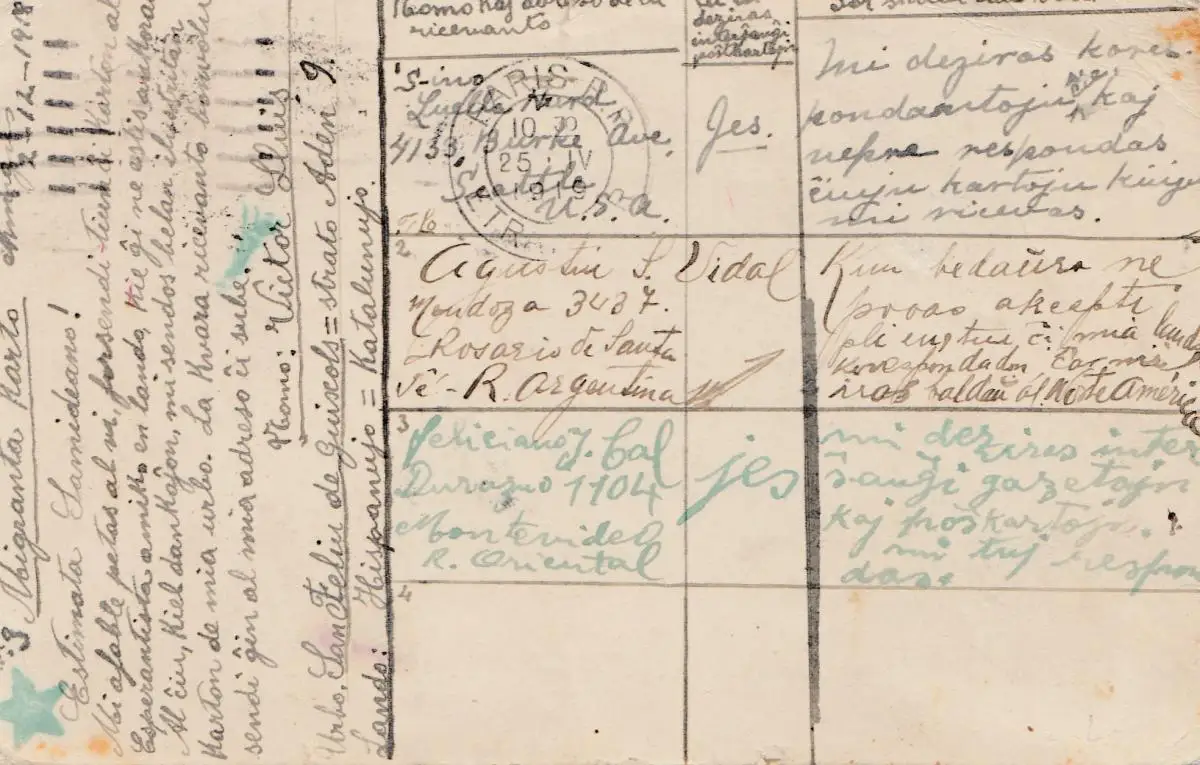 N-ro 3 Migranta Karto 21-12-1918
Estimata Samideano!
Mi afable petas al vi, forsendi tiun ĉi karton al
Esperantista amiko en lando, kie ĝi ne estis ankoraŭ.
Al ĉiu, kiel dankaĵon, mi sendos belan ilustritan
karton de mia urbo. La kvara ricevanto bonvolu
sendi ĝin al mia adreso ĉi sube.
Nomo: Victor Lluis
Urbo, San Feliu de Guixols = strato Aden 9.
Lando: Hispanujo = Katalunujo.
Nomo kaj adreso de la
ricevanto
deziras
interŝanĝi
poŝtkartojn
1
S-ino
Luella Hurd
4133, Burke Ave.
Seattle
U.S.A.
Jes.
Mi deziras kores-
pondantojn, kaj
nepre respondas
ĉiujn kartojn kiujn
mi ricevas.
PARIS
10 22
25 IV
1919
ETR.
2
Agustin S. Vidal
Mendoza 3437.
Rosario de Santa
Fé - R. Argentina
Kun bedaŭro ne
povas akcepti
pli
3
Feliciano J. Cal
Durazno 1104
Montevideo
R. Oriental
jes
mi deziras inter
ŝanĝi gazetojn
kaj poŝkartojn.
mi tuj respon
das.
4